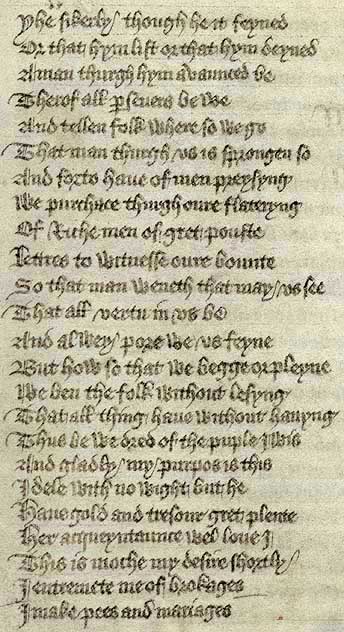 Yhe sikerly / though he it feyned
Or that hym list or that hym deyned
A man thurgh hym avaunced be
Therof all pseners be we
And tellen folk where so we go
That man thurgh vs is sprongen so
And forto haue of men preysyng
We purchace thurgh oure flateryng
Of Riche men of gret pouste
Lettres to witnesse oure bounte
So that man weneth that may vs see
That all vertu in vs be
And alwey / pore we / vs feyne
But how so that we begge or pleyne
We ben the folk without lesyng
That all thing haue without hauyng
Thus be we dred of the puple Iwis
And gladly / my purpos is this
I dele with no wight but he
Haue gold and tresour gret plente
Her acqueyntaunce wel loue I
This is moche my desire shortly /
I entremete me of brokages
I make pees and mariages